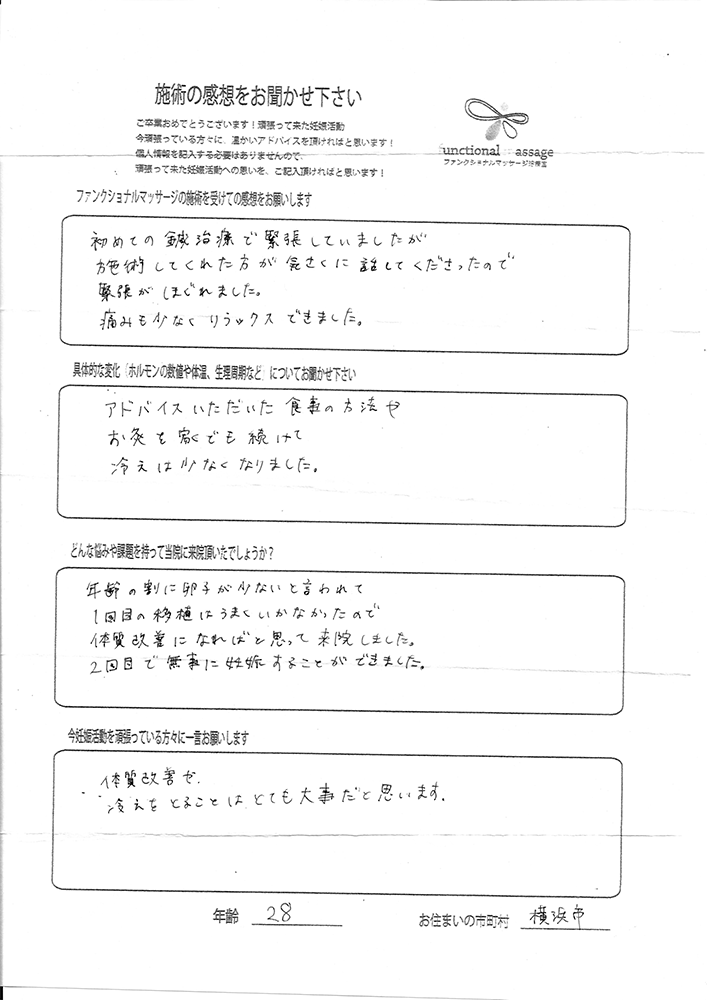 施術の感想をお聞かせ下さい
ご卒業おめでとうございます！頑張って来た妊娠活動
今頑張っている方々に、温かいアドバイスを頂ければと思います！
個人情報を記入する必要はありませんので、
頑張って来た妊娠活動への思いを、ご記入頂ければと思います！
unctional assage
ファンクショナルマッサージ治療室
ファンクショナルマッサージの施術を受けての感想をお願いします
初めての鍼治療で緊張していましたが
施術してくれた方が気さくに話してくださったので
緊張がほぐれました。
痛みも少なくリラックスできました。
具体的な変化「ホルモンの数値や体温、生理周期など」についてお聞かせ下さい
アドバイスいただいた食事の方法や
お灸を家でも続けて
冷えは少なくなりました。
どんな悩みや課題を持って当院に来院頂いたでしょうか？
年齢の割に卵子が少ないと言われて
1回目の移植はうまくいかなかったので
体質改善になればと思って来院しました。
2回目で無事に妊娠することができました。
今妊娠活動を頑張っている方々に一言お願いします
体質改善や、
冷えをとることはとても大事だと思います。
年齢 28
お住まいの市町村 横浜市